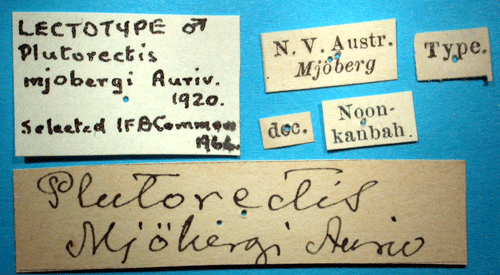 LECTOTYPE ♂
Plutorectis
mjobergi Auriv.
1920.
Selected IFBCommon
1966.
N. V. Austr.
Mjöberg
Type.
dec.
Noon-
kanbah.
Plutorectis
Mjöbergi Auriv